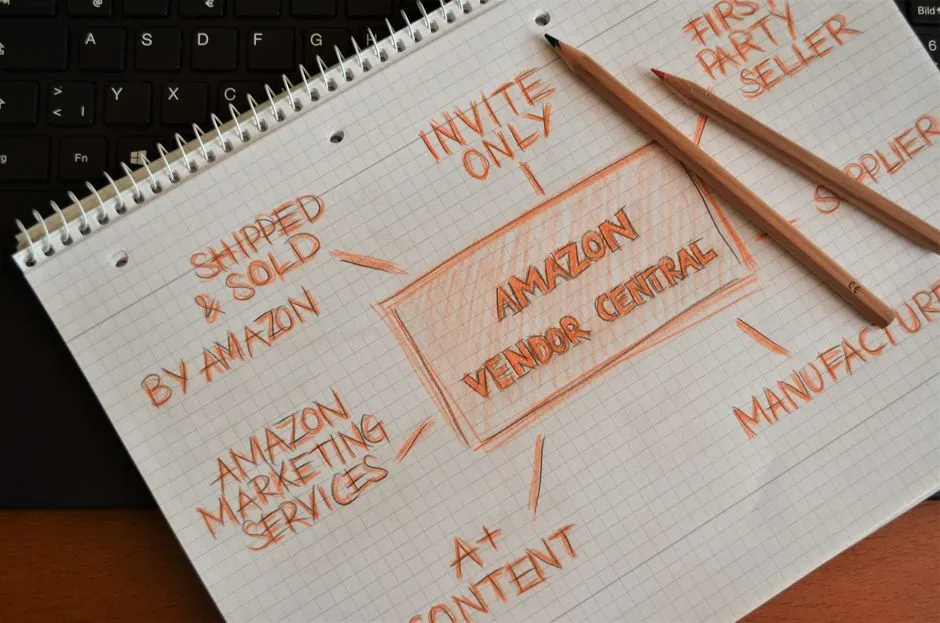 A S D F G
> < | Y X C
Fn
Bild
6
INVITE
ONLY
FIRST
PARTY
SELLER
SUPPLIER
SHIPPED
& SOLD
BY AMAZON
AMAZON
VENDOR CENTRAL
MANUFACTURE
AMAZON
MARKETING
SERVICES
A+
CONTENT